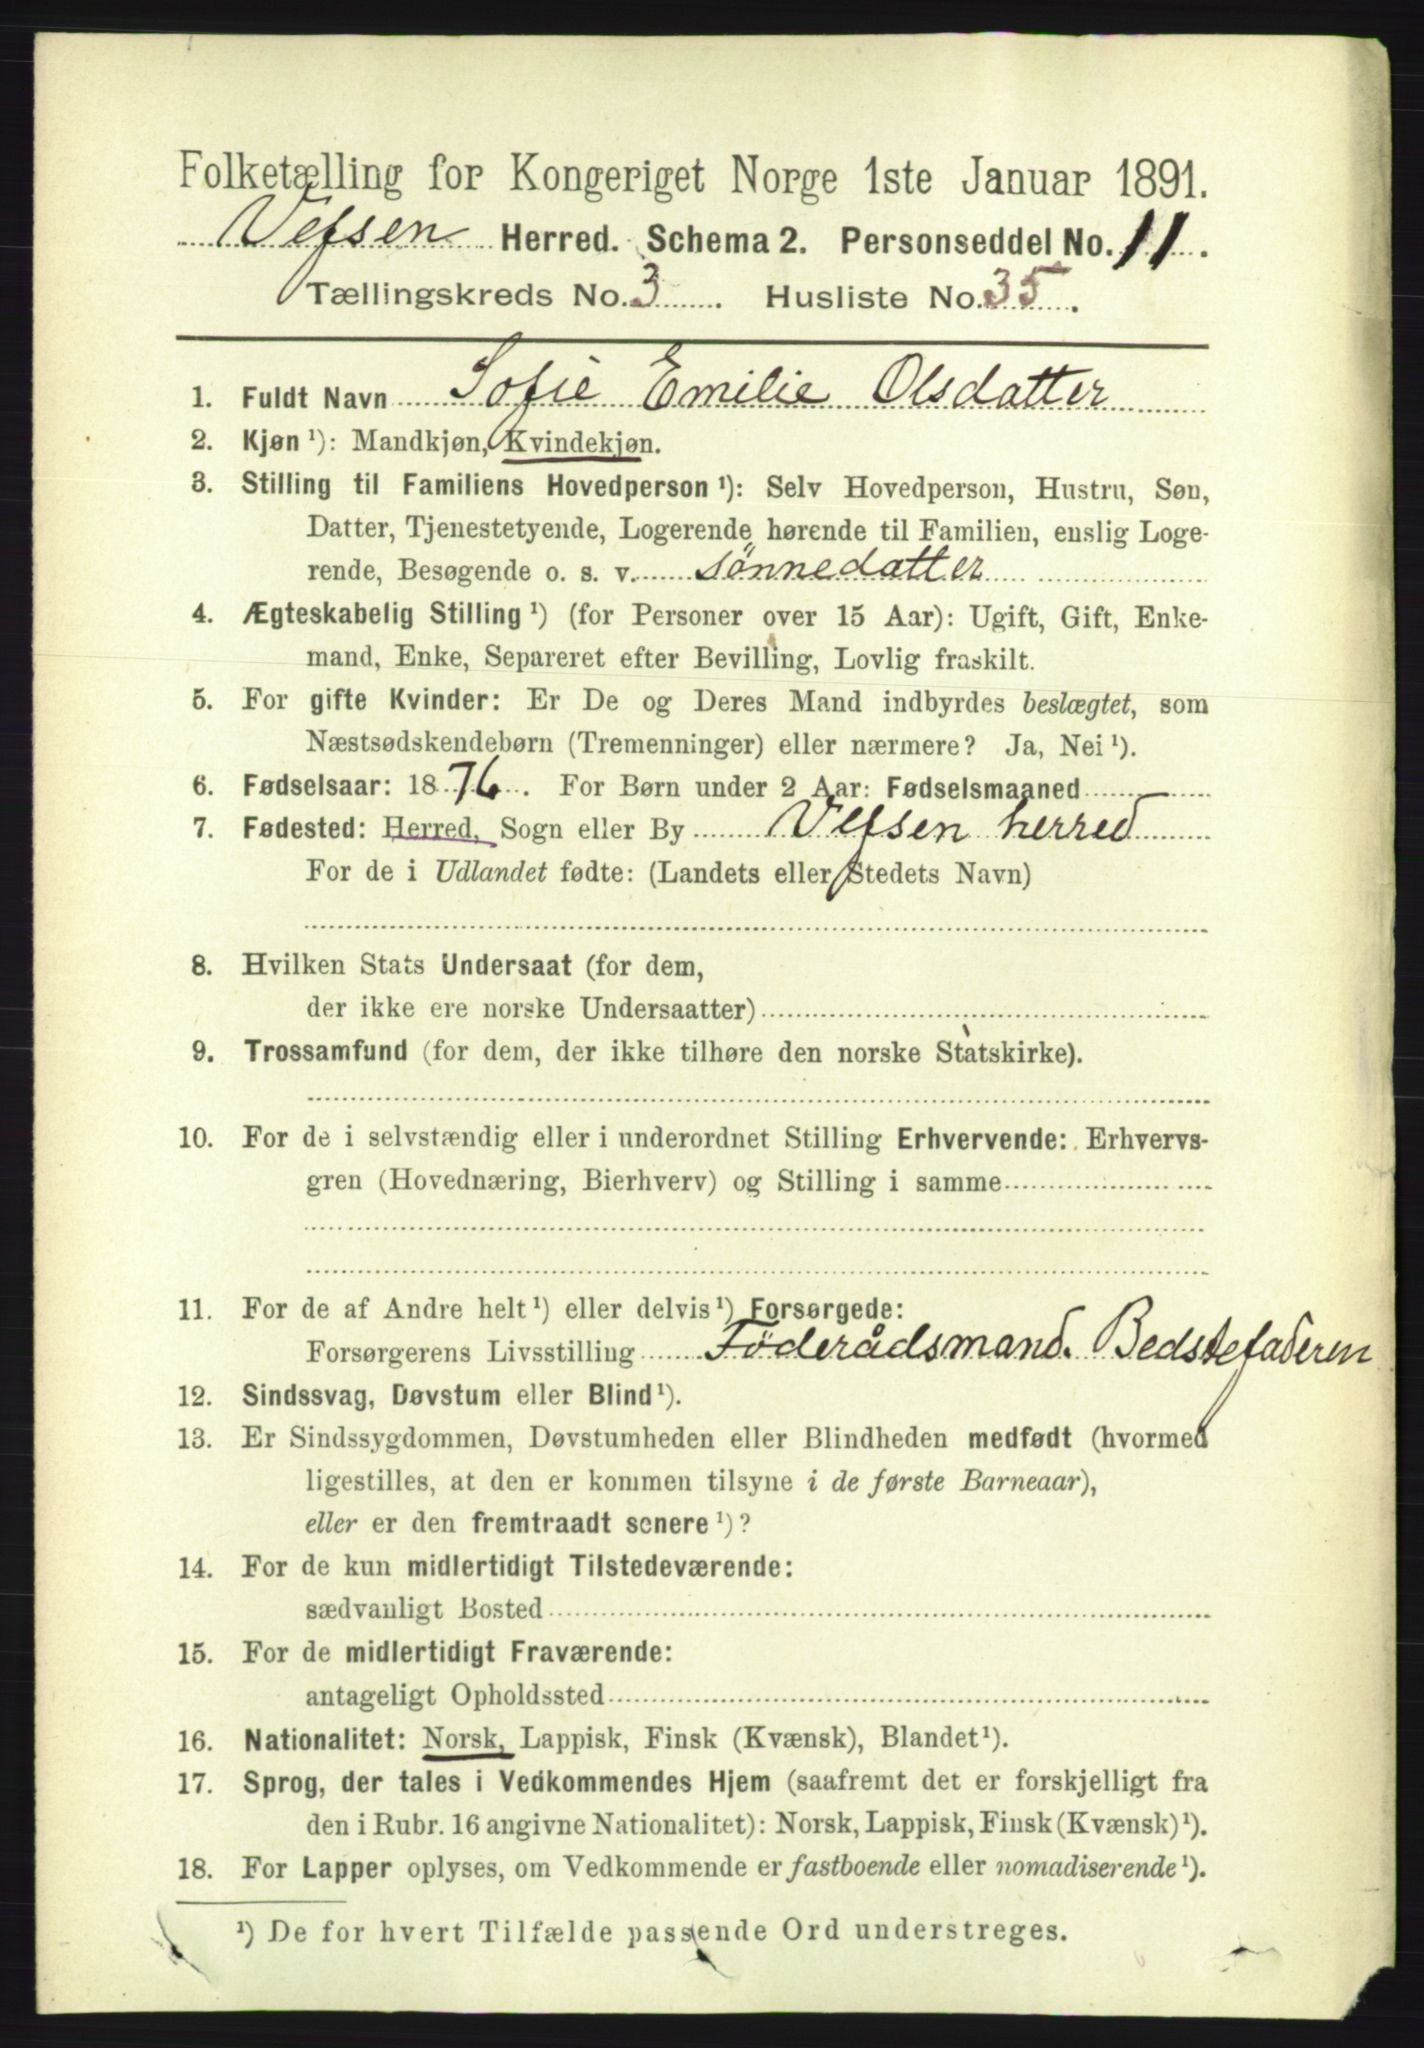 Folketælling for Kongeriget Norge 1ste Januar 1891.
Vefsen Herred. Schema 2. Personseddel No. 11.
Tællingskreds No. 3. Husliste No. 35.
1. Fuldt Navn Sofie Emilie Olsdatter
2. Kjøn ¹): Mandkjøn, Kvindekjøn.
3. Stilling til Familiens Hovedperson ¹): Selv Hovedperson, Hustru, Søn,
Datter, Tjenestetyende, Logerende hørende til Familien, enslig Loge-
rende, Besøgende o. s. v. sønnedatter
4. Ægteskabelig Stilling ¹) (for Personer over 15 Aar): Ugift, Gift, Enke-
mand, Enke, Separeret efter Bevilling, Lovlig fraskilt.
5. For gifte Kvinder: Er De og Deres Mand indbyrdes beslægtet, som
Næstsødskendebørn (Tremenninger) eller nærmere? Ja, Nei ¹).
6. Fødselsaar: 1876. For Børn under 2 Aar: Fødselsmaaned
7. Fødested: Herred, Sogn eller By Vefsen herred
For de i Udlandet fødte: (Landets eller Stedets Navn)
8. Hvilken Stats Undersaat (for dem,
der ikke ere norske Undersaatter)
9. Trossamfund (for dem, der ikke tilhøre den norske Statskirke).
10. For de i selvstændig eller i underordnet Stilling Erhvervende: Erhvervs-
gren (Hovednæring, Bierhverv) og Stilling i samme
11. For de af Andre helt ¹) eller delvis ¹) Forsørgede:
Forsørgerens Livsstilling Föderådsmand. Bedstefaderen
12. Sindssvag, Døvstum eller Blind ¹).
13. Er Sindssygdommen, Døvstumheden eller Blindheden medfødt (hvormed
ligestilles, at den er kommen tilsyne i de første Barneaar),
eller er den fremtraadt senere ¹)?
14. For de kun midlertidigt Tilstedeværende:
sædvanligt Bosted
15. For de midlertidigt Fraværende:
antageligt Opholdssted
16. Nationalitet: Norsk, Lappisk, Finsk (Kvænsk), Blandet ¹).
17. Sprog, der tales i Vedkommendes Hjem (saafremt det er forskjelligt fra
den i Rubr. 16 angivne Nationalitet): Norsk, Lappisk, Finsk (Kvænsk) ¹).
18. For Lapper oplyses, om Vedkommende er fastboende eller nomadiserende ¹).
¹) De for hvert Tilfælde passende Ord understreges.